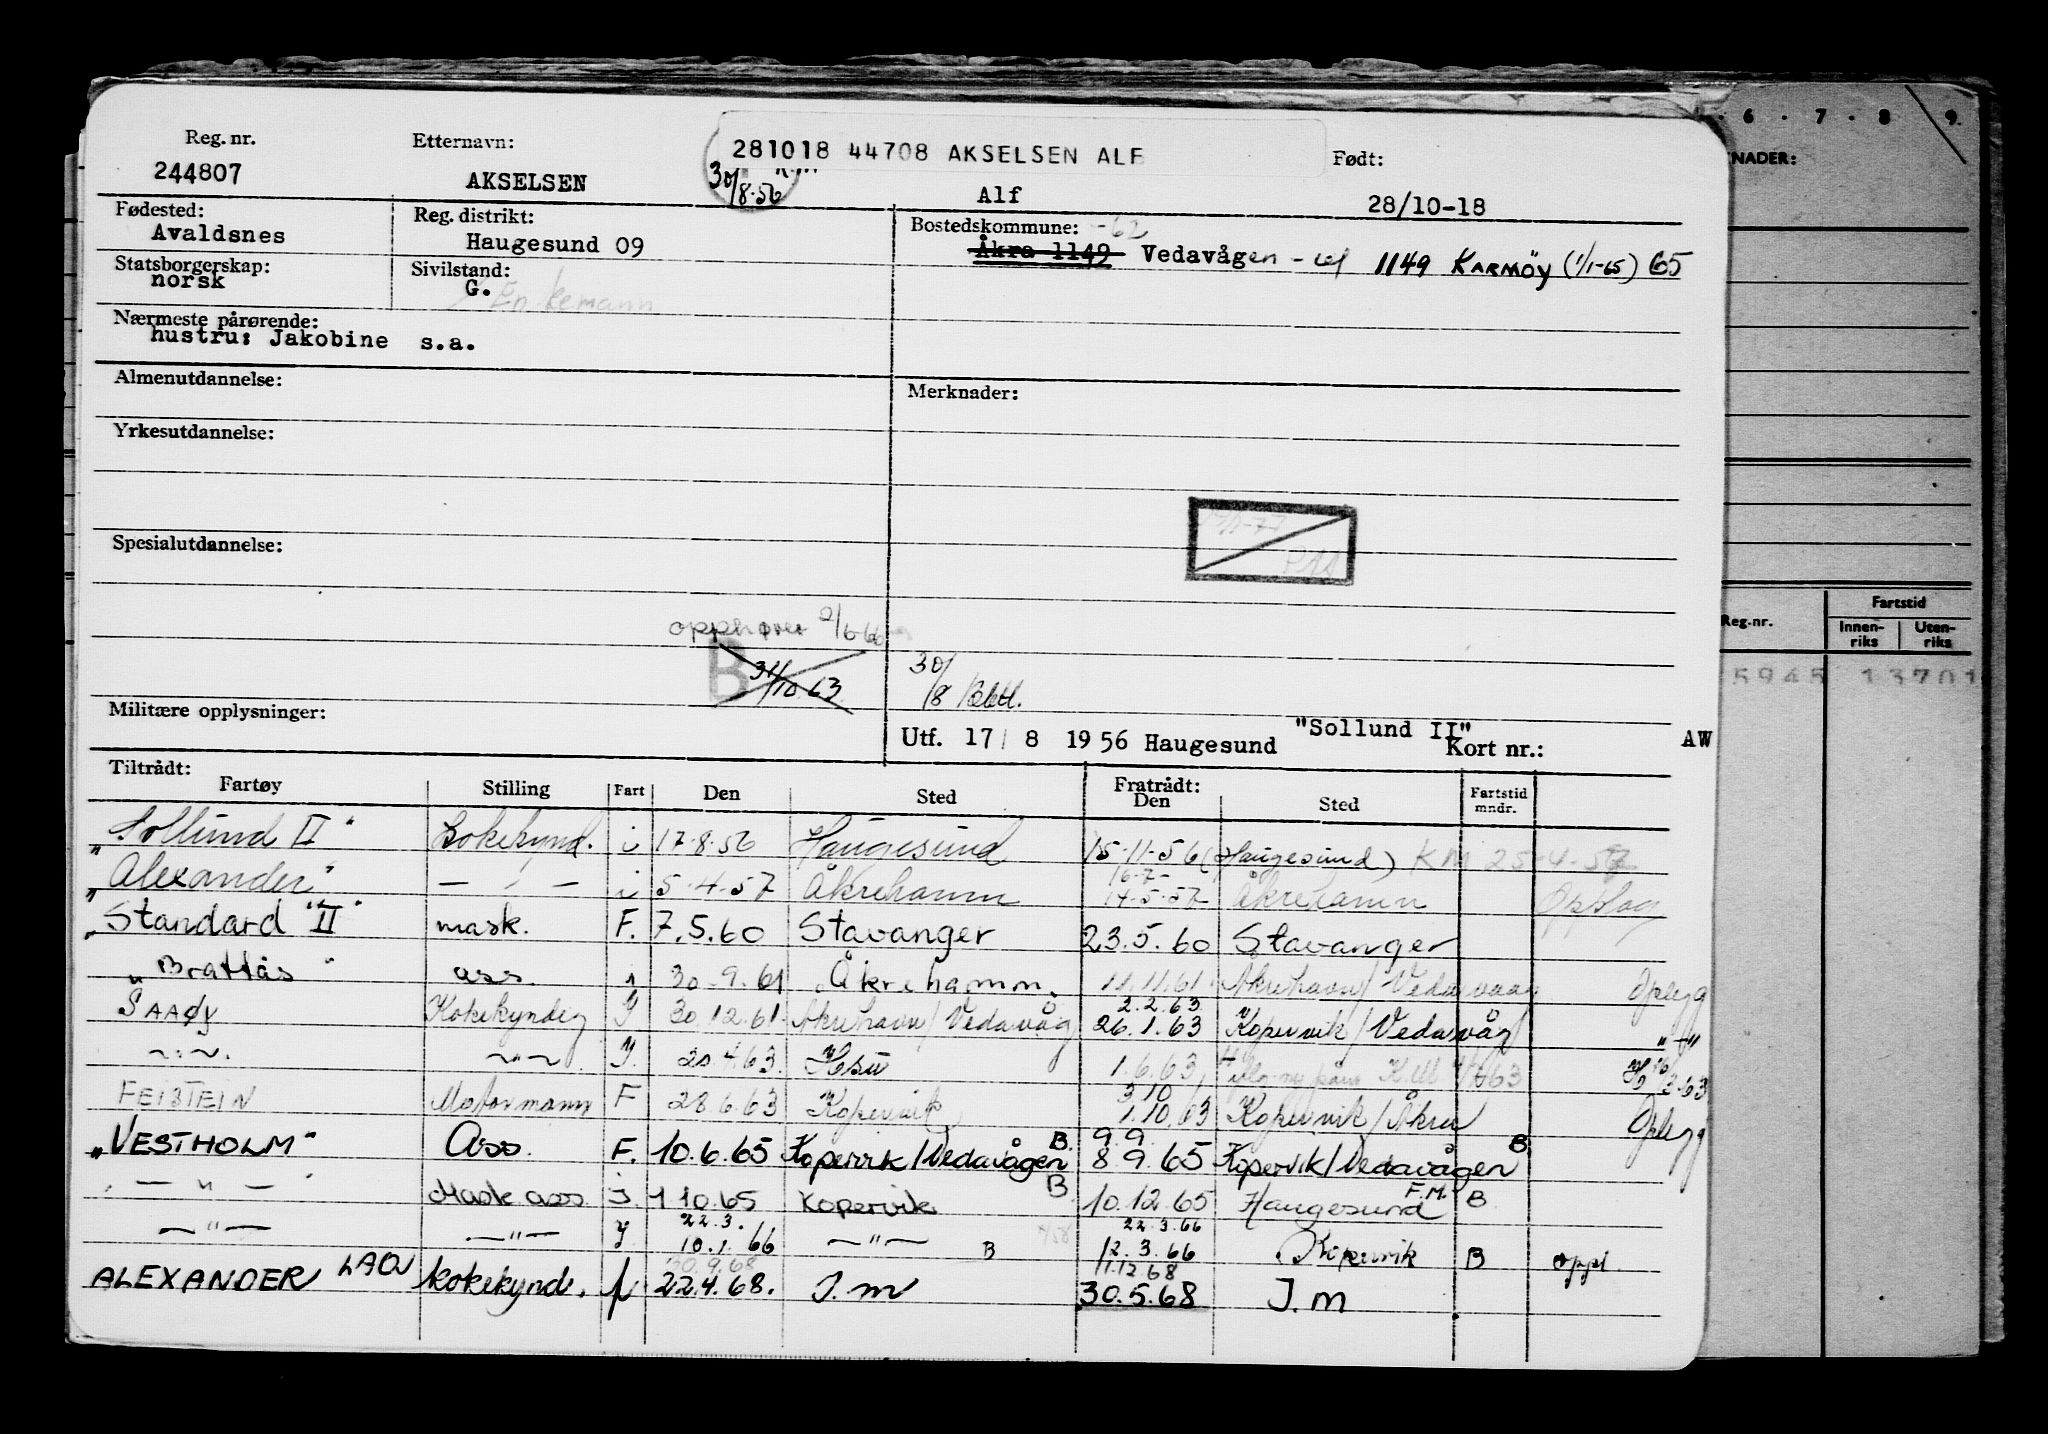 6 . 7 . 8 . 9.
NADER:
Reg. nr. Etternavn: 281018 44708 AKSELSEN ALF Født:
244807 AKSELSEN 30/8-56 Alf 28/10-18
Fødested: Reg. distrikt: Bostedskommune: -62
Avaldsnes Haugesund 09 Åkra 1149 Vedavågen - 1149 KARMÖY (1/1-65) 65
Statsborgerskap: Sivilstand:
norsk G. Enkemann
Nærmeste pårørende:
hustru: Jakobine s.a.
Almenutdannelse: Merknader:
Yrkesutdannelse:
Spesialutdannelse:
Reg.-nr. Fartstid
Innen-riks Uten-riks
5945 13701
opphører 2/6-66
B 31/10 63 30/8
Militære opplysninger:
Utf. 17/8 1956 Haugesund "Sollund II" Kort nr.: AW
Tiltrådt: Fratrådt:
Fartøy Stilling Fart Den Sted Den Sted Fartstid mndr.
"Sollund II" Kokekynd. i 17.8.56 Haugesund 15.11.56 (Haugesund) KM 25-4-57
16-7-
"Alexander" — " — i 5.4.57 Åkrehamn 14.5.57 Åkrehamn Opplag
"Standard "II" mask. F. 7.5.60 Stavanger 23.5.60 Stavanger
"Brattås" ass. 30.9.61 Åkrehamn. 11.11.61 Åkrehavn/Vedavaag Oplegg
2.2.63
SAAØY Kokekyndig 30.12.61 Åkrehavn/Vedavåg 26.1.63 Kopervik/Vedavåg — " —
— " — — " — 20.4.63 Hsu 1.6.63
3 10
FEISTEIN Motormann F 28.6.63 Kopervik 1.10.63 Kopervik/Åkra Oplegg
9.9.
"VESTHOLM" Ass. F. 10.6.65 Kopervik/Vedavågen B. 8 9.65 Kopervik/Vedavågen B.
— " — Mask ass. 1 10.65 Kopervik B 10.12.65 Haugesund F.M. B.
22.3. 22.3.66
— " — — " — 10.1.66 — " — B 12.3.66 Kopervik B oppl.
30.9.68 1.12 68
ALEXANDER kokekynd. 22.4.68. J.m 30.5.68 J.M